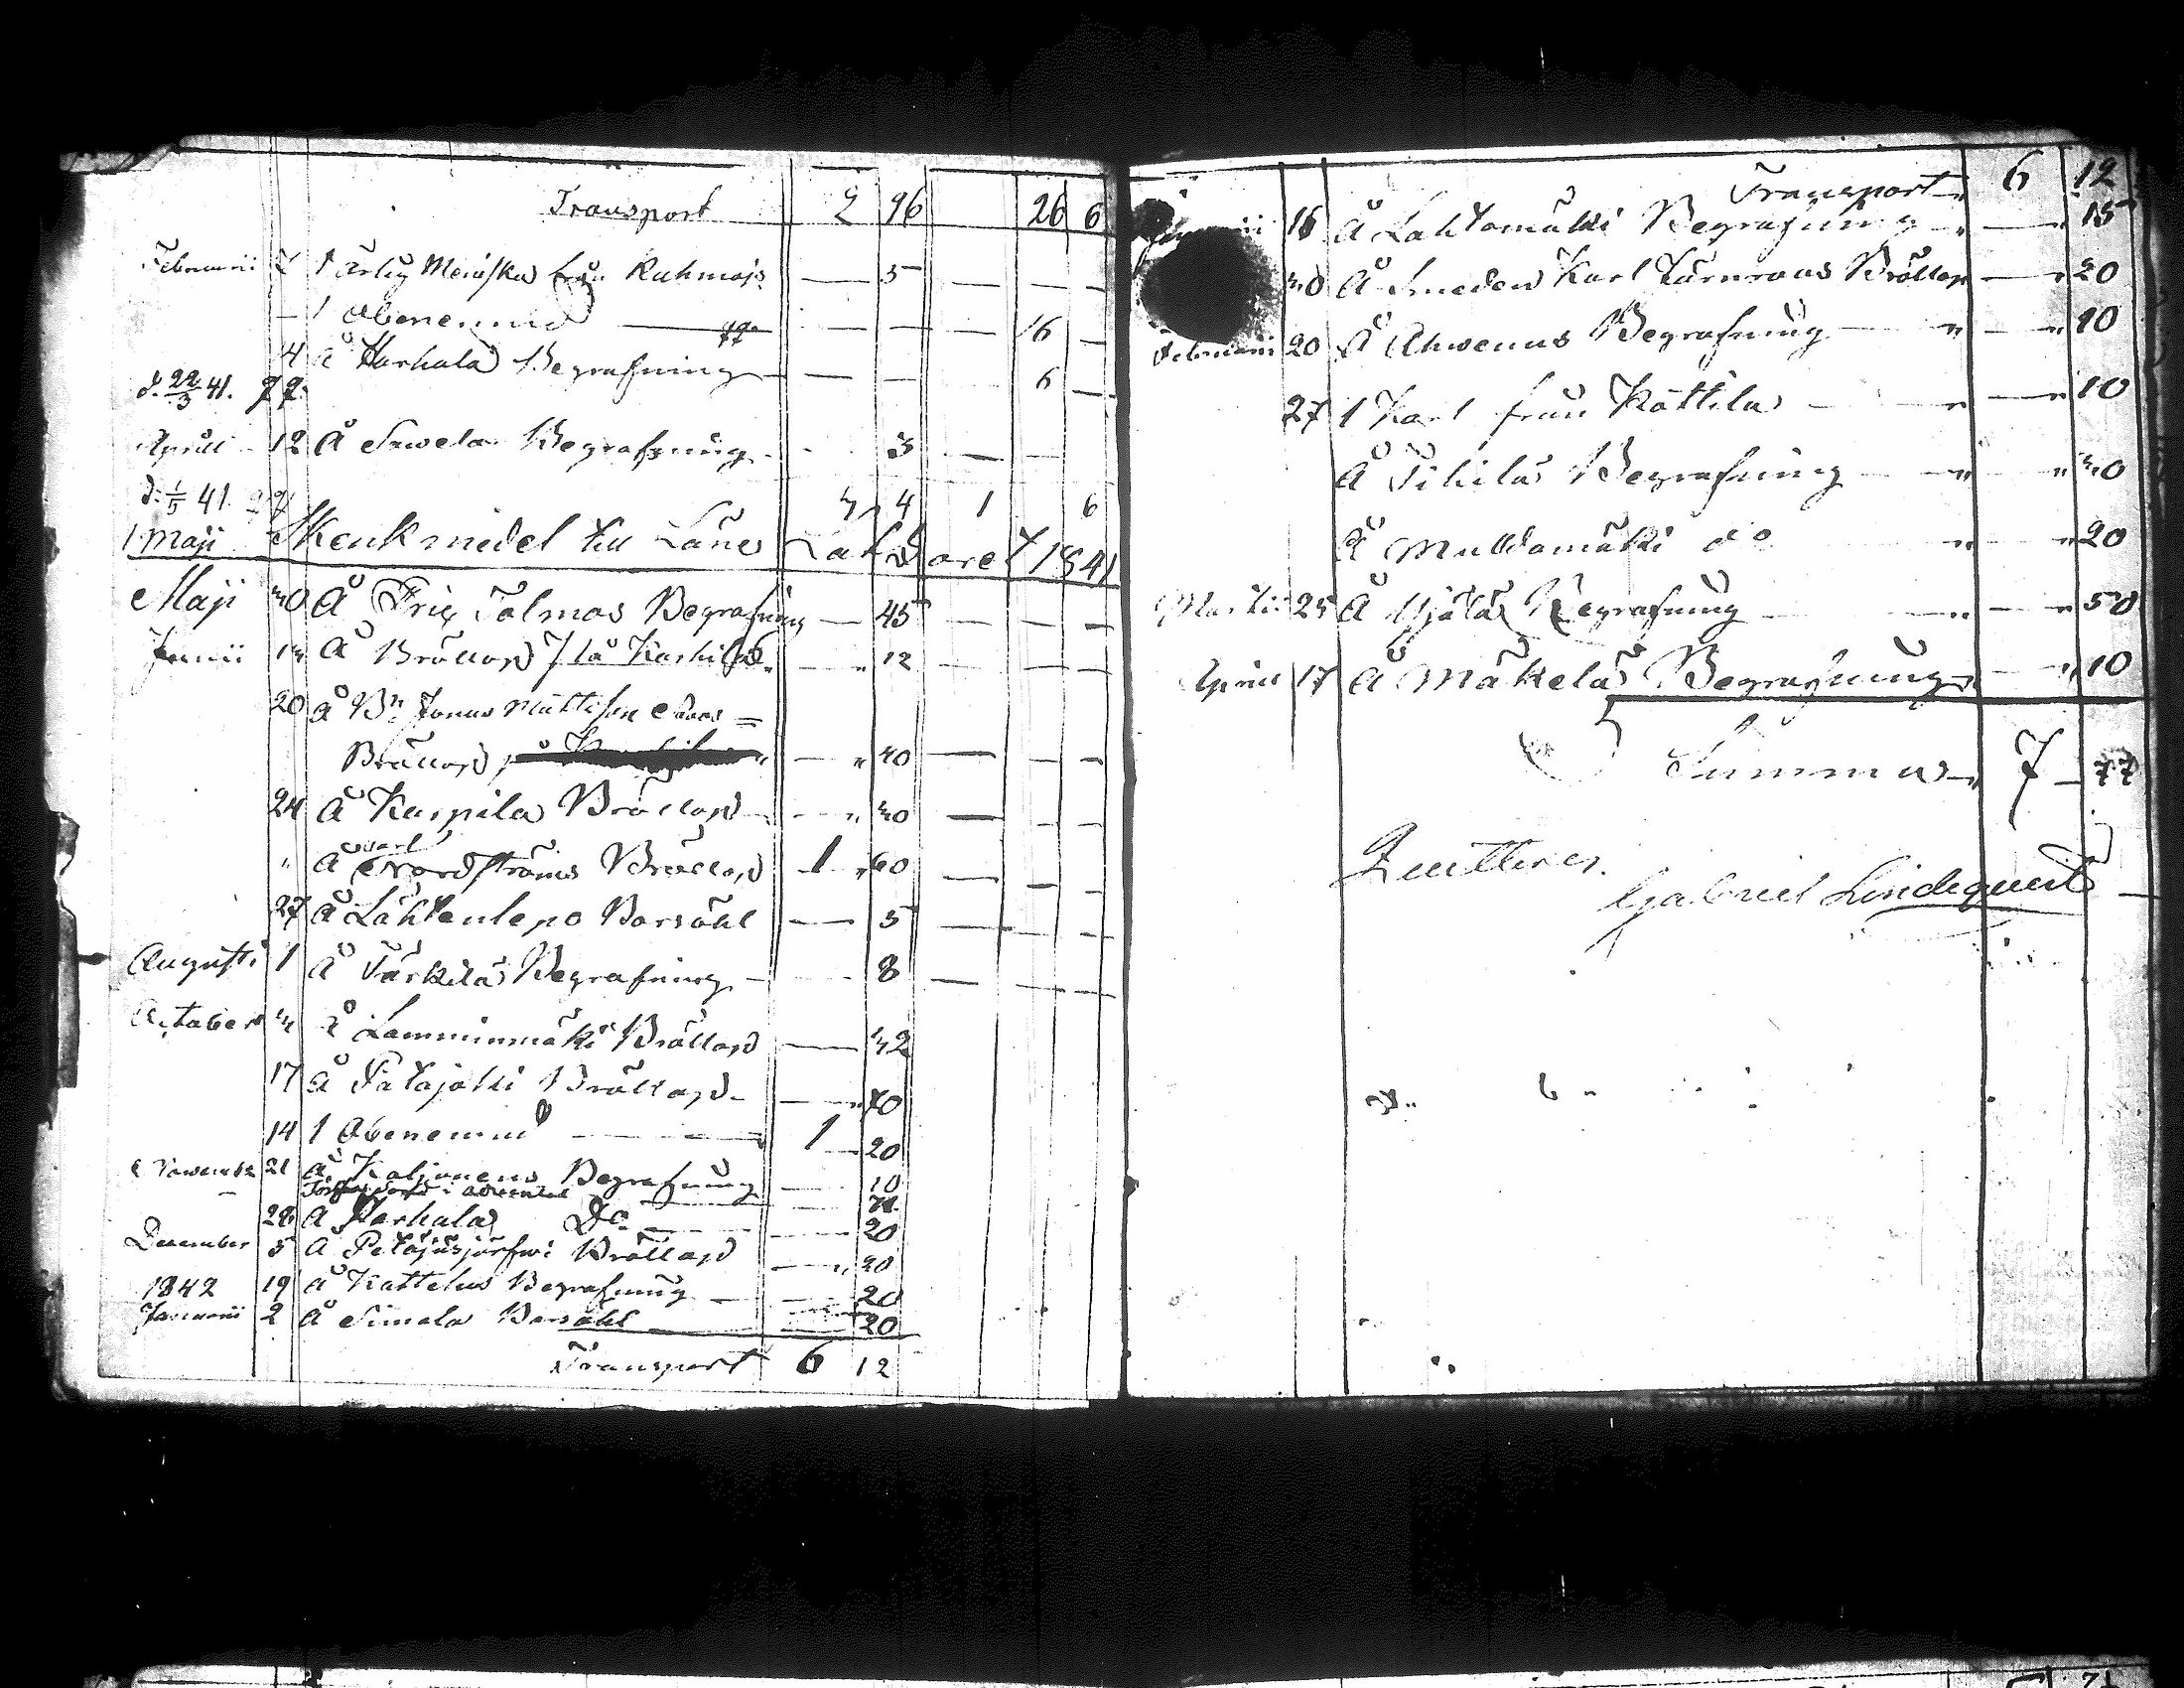 Transport 2 96 26 6
Februarii 7 1 ärlig Meniska från Ruhmaja — 5 — — —
— 1 Obenemnd — — — 16 —
14 Å Harhala Begrafning — — — 6 —
d. 22/3 41.
Aprill 12 Å Suwela Begrafning 3 — —
d. 1/5 41. 3 4 1 6
1 Maji Skenkmedel till Låne Lah D året 1841
Maji 30 Å Frig Tolmos Begrafning — 45 — — —
Junii 13 Å Bröllop — " 12 — — —
20 Å Bn Jonas Mattsson
Bröllop — " 40 — — —
24 Å Karpila Bröllop — " 30 — — —
" Å Carl Nordströms Bröllop 1 " 60 — — —
27 Å Lähtenlepo Barsöhl — 5 — — —
Augusti 1 Å Tärkilä Begrafning — 8 — — —
October 3 Å Lamminmäki Bröllop — 32
17 Å Patajoki Bröllop — " 70
14 1 Obenemnd — 1 — 20
Novemb 21 Å Kaljonens Begrafning — 10
28 Å Perhala Do — 20
December 5 Å Petäjäsjärfwi Bröllop — " 20
1842 19 Å Kattelus Begrafning — 20
Januarii 2 Å Simola Barsöhl — 20
Transport 6 12
Transport " 6 12
16 Å Lahtomäki Begrafning " — 15
30 Å Smeden Karl Bröllop — " 20
Februarii 20 Å Ahwenus Begrafning — " — " 10
27 1 Karl från Köttilä — " — " 10
Å Tihilä Begrafning — " " 30
Å Mulldamäki do " " 20
Martii 25 Å Ujälä Begrafning — " — " 50
Aprill 17 Å Mäkelä Begrafning " — " 10
Summa " 7 — 77
Quitteras.
Gabriel Lindequist